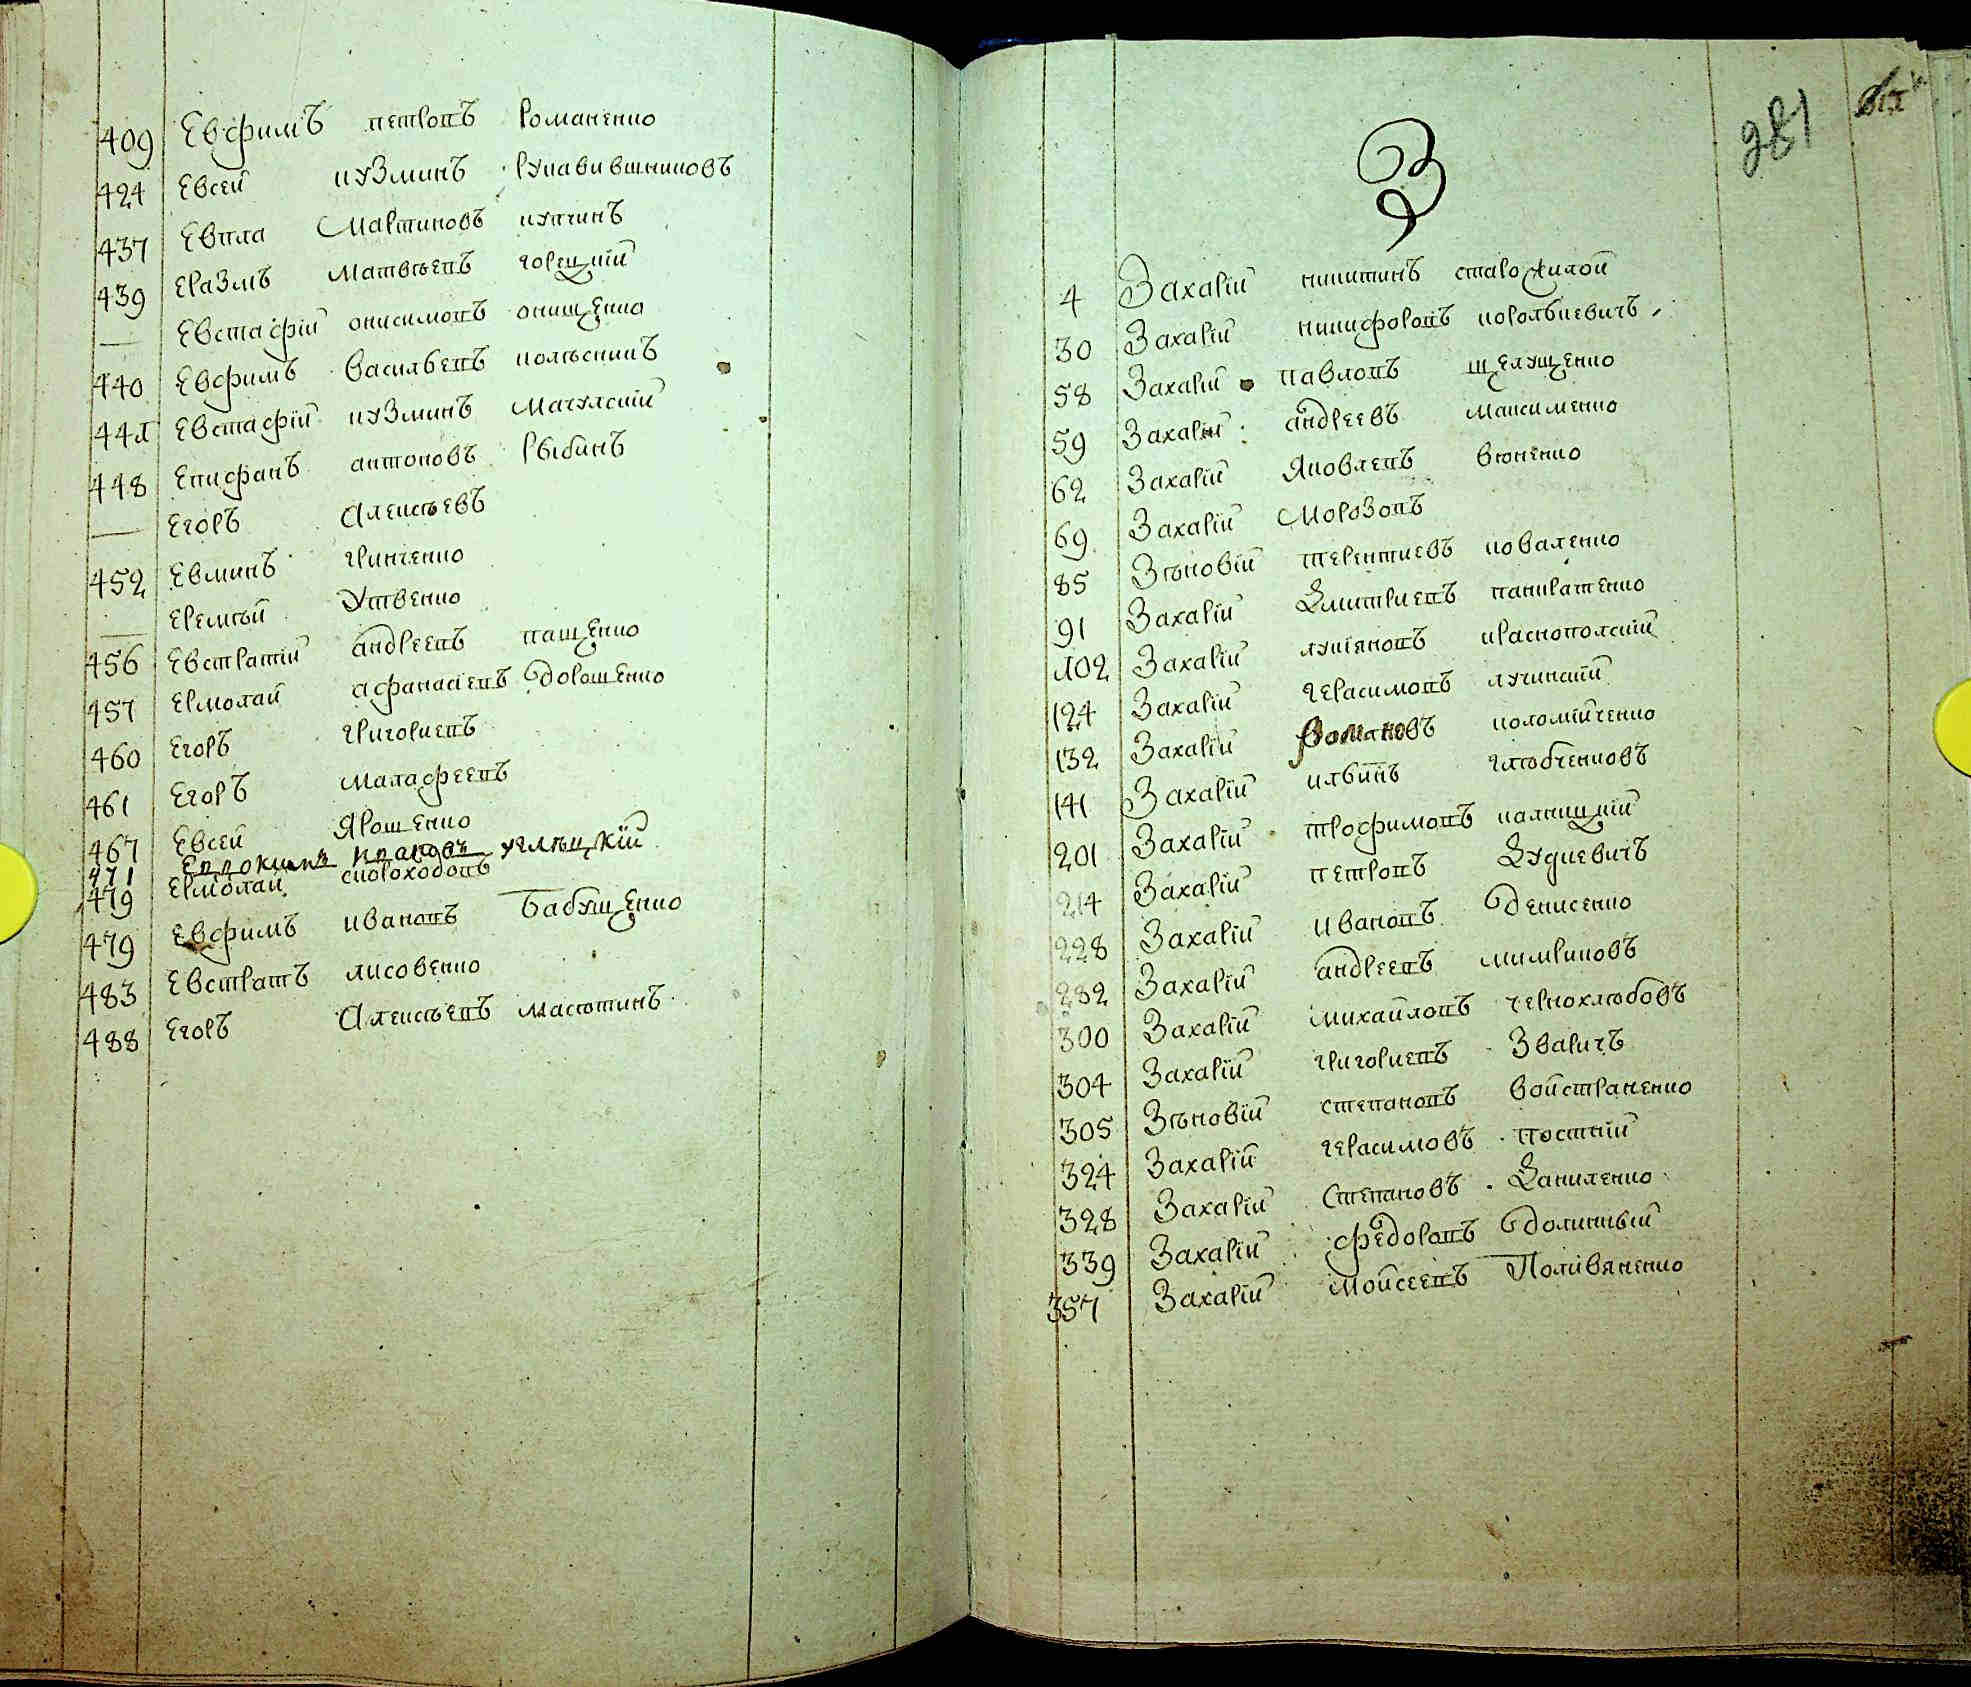 409 Евфимъ петровъ Романенко
424 Евсей кузминъ Рукавишниковъ
437 Евпла Мартиновъ купчинъ
439 Еразмъ Матвѣевъ горецкій
— Евстафій онисимовъ онищенко
440 Евфимъ Васильевъ полѣскинъ
441 Евстафій кузминъ Мачулскій
448 Епифанъ антоновъ Рыбинъ
— Егоръ Алексѣевъ
452 Евминъ Гринченко
— Еремѣй Утвенко
456 Евстратій андреевъ пащенко
457 Ермолай афанасіевъ Дорошенко
460 Егоръ Григориевъ
461 Егоръ Малафеевъ
467 Евсей Ярошенко
471 Евдокимъ углѣцкій
479 Ермолай скороходовъ
479 Евфимъ ивановъ Бабущенко
483 Евстратъ лисовенко
488 Егоръ Алексѣевъ Масютинъ
281
З
4 Захарій никитинъ старожилой
30 Захарій никифоровъ корольkевичъ
58 Захарій павловъ щелущенко
59 Захарій андреевъ максименко
62 Захарій Яковлевъ вюненко
69 Захарій Морозовъ
85 Зѣновій терентиевъ коваленко
91 Захарій Дмитриевъ панкратенко
102 Захарій лукіановъ краснополскій
124 Захарій герасимовъ лучинскій
132 Захарій Романовъ коломійченко
141 Захарій ильинъ глюбченковъ
201 Захарій трофимовъ калницкій
214 Захарій петровъ Дудкевичъ
228 Захарій ивановъ Денисенко
282 Захарій андреевъ мимриковъ
300 Захарій михайловъ чернохлюбовъ
304 Захарій григориевъ Зваричъ
305 Зѣновій степановъ войстраненко
324 Захарій герасимовъ постній
328 Захарій Степановъ Даниленко
339 Захарій федоровъ Долинный
357 Захарій мойсеевъ Поливяненко